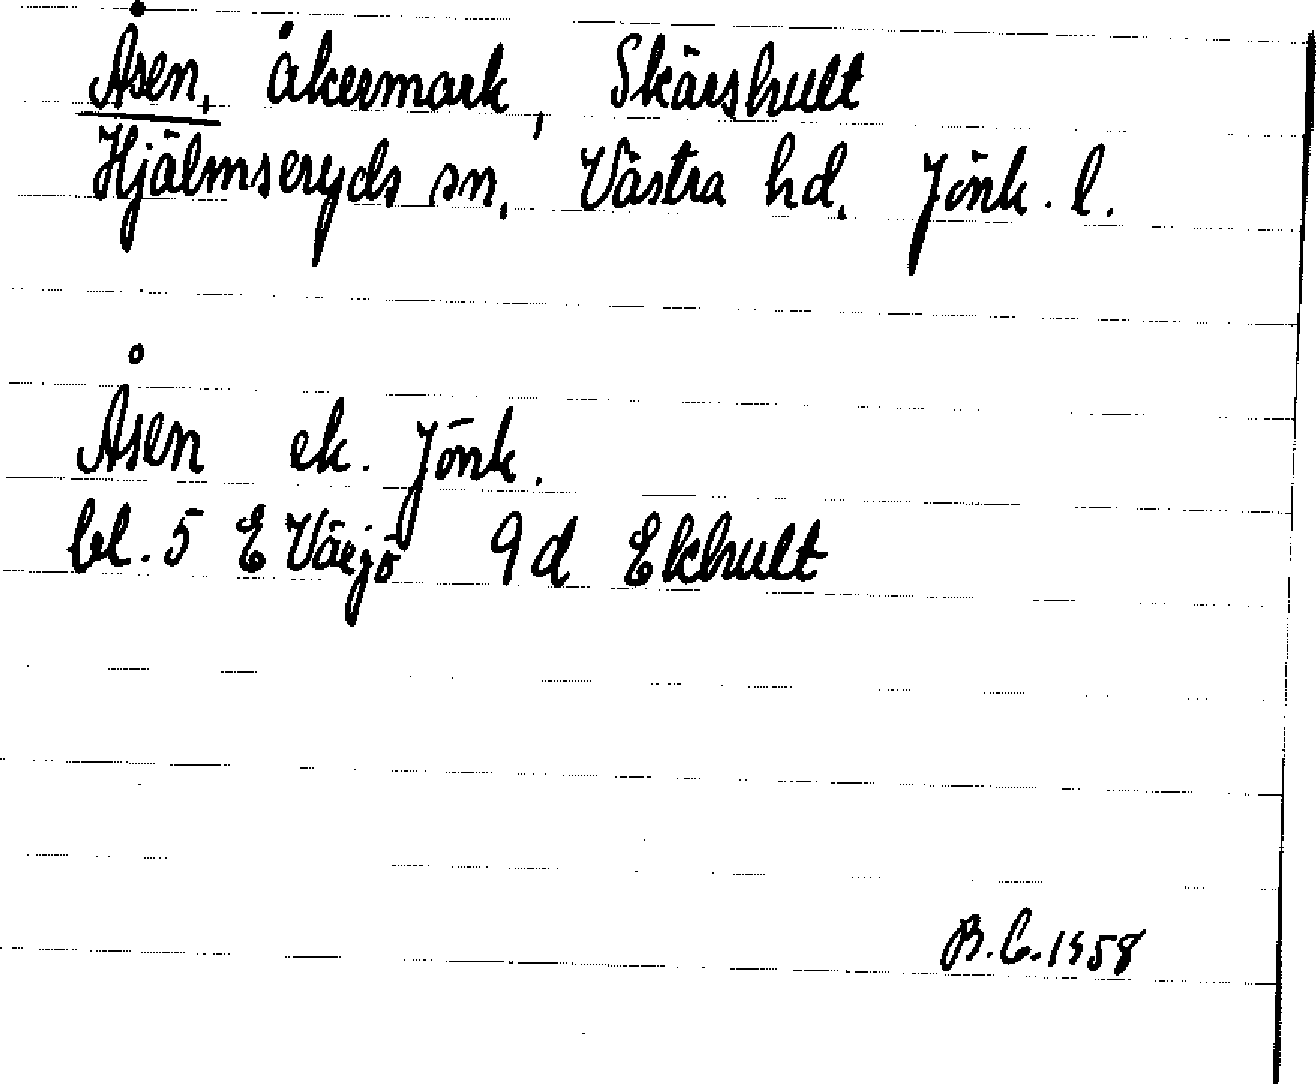 Åsen, åkermark, Skärshult
Hjälmseryds sn, Västra hd, Jönk. l.
Åsen ek. Jönk.
bl. 5 E Växjö 9d Ekhult
B.C. 1958